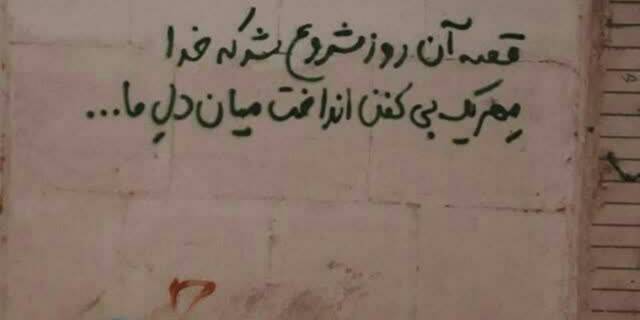 قصه آن روز شروع شد که خدا
مِهرِ یک بی کفن انداخت میان دلِ ما...